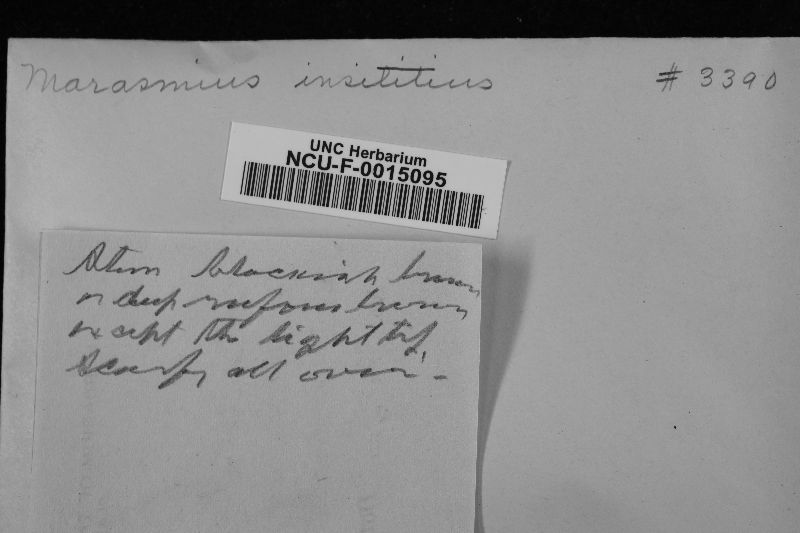 Marasmius insititius # 3390
UNC Herbarium
NCU-F-0015095
Stem blackish brown
or deep rufous brown
except the light tip,
scurfy all over -